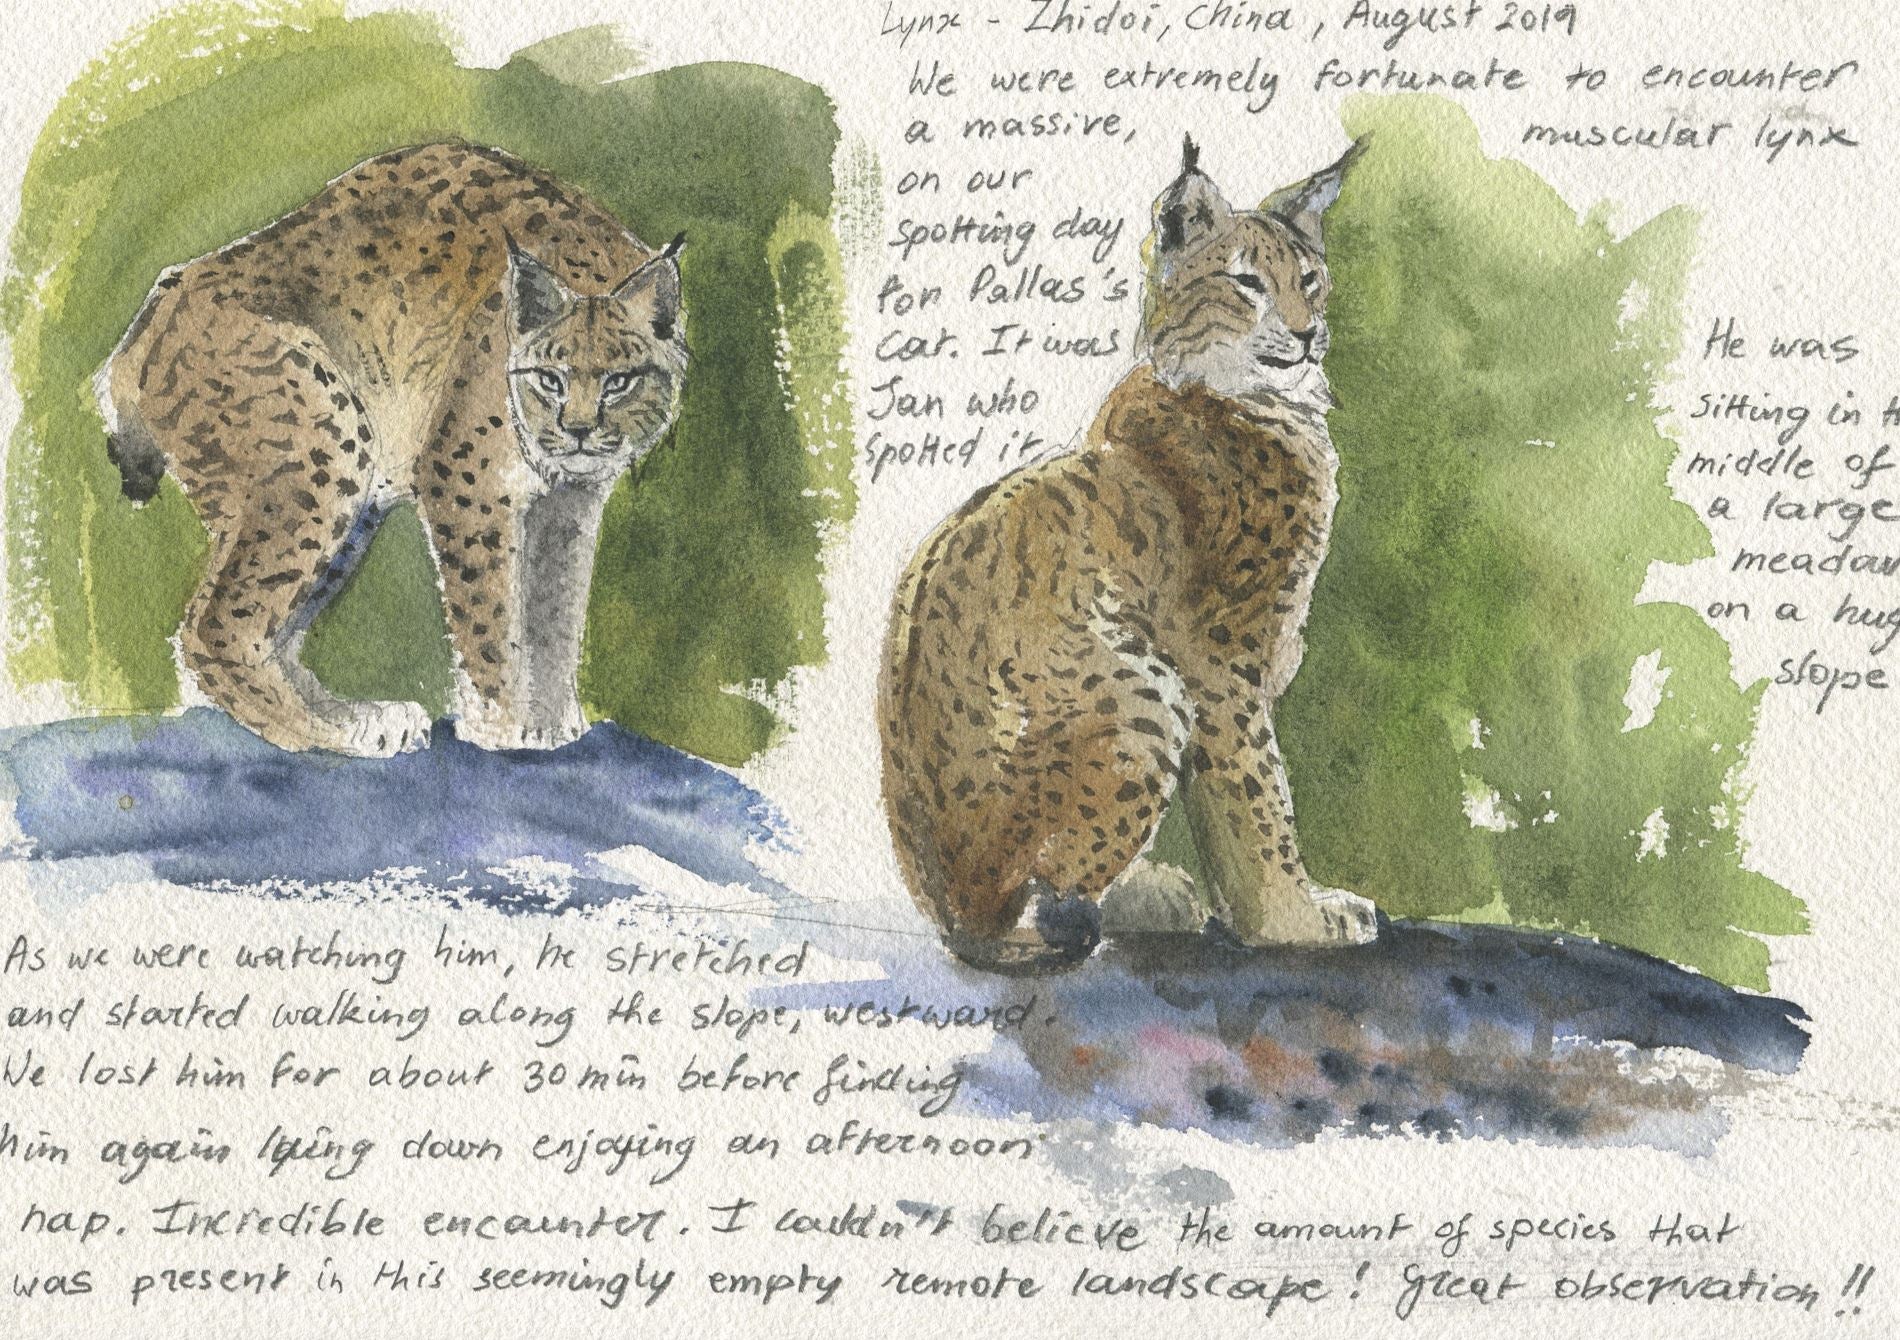 Lynx - Zhidoi, China, August 2019
We were extremely fortunate to encounter
a massive, muscular lynx
on our
spotting day
for Pallas's
cat. It was
Jan who
spotted it
He was
sitting in
middle of
a large
meadow
on a
slope
As we were watching him, he stretched
and started walking along the slope, westward.
We lost him for about 30 min before finding
him again laying down enjoying an afternoon
nap. Incredible encounter. I couldn't believe the amount of species that
was present in this seemingly empty remote landscape! Great observation!!